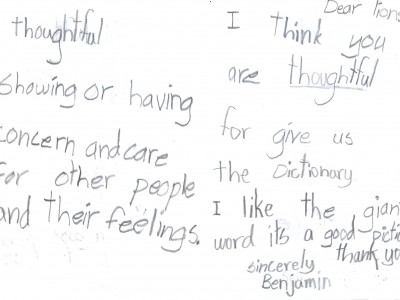 thoughtful
showing or having
concern and care
for other people
and their feelings.
Dear lions
I think you
are thoughtful
for give us
the Dictionary
I like the giant
word its a good
thank you
sincerely
Benjamin